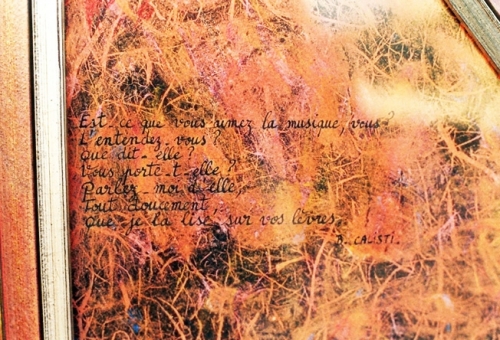 Est_ce que vous aimez la musique, vous?
L'entendez_vous?
Que dit_elle?
Vous porte_t_elle?
Parlez_moi d'elle,
Tout doucement,
Que je la lise sur vos lèvres.
B. CALISTI.